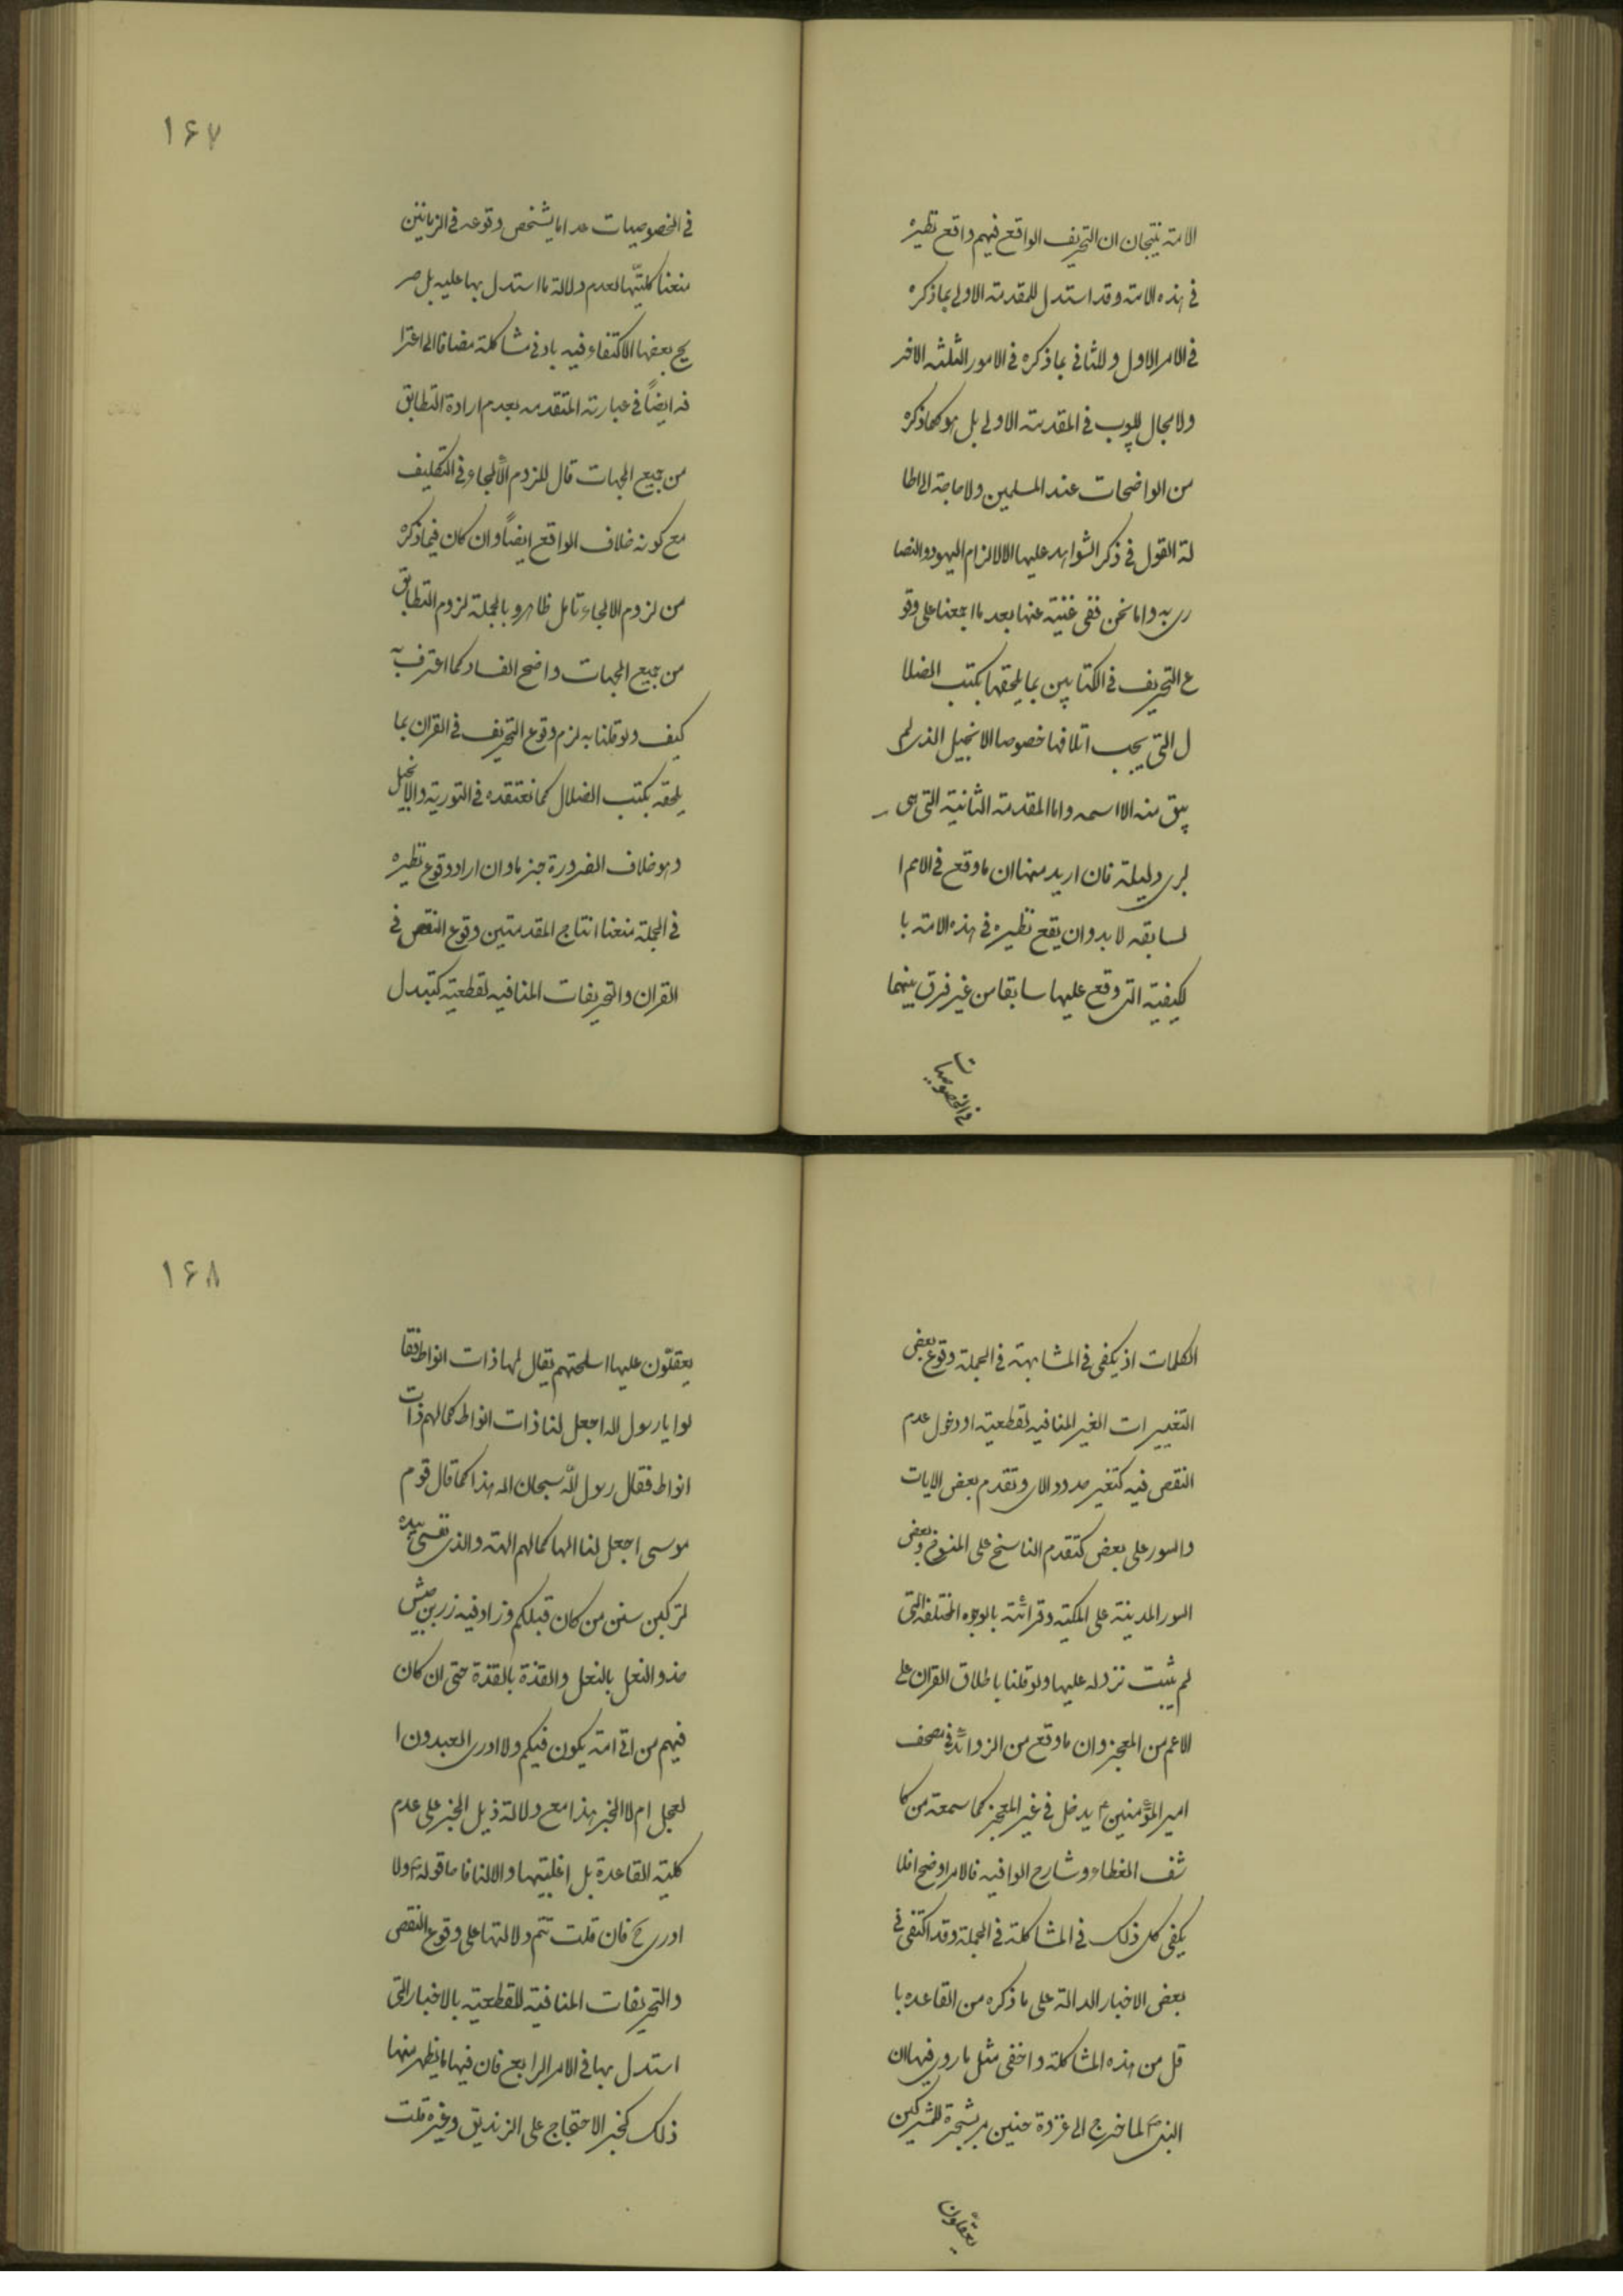 الامة ينتجان ان التحريف الواقع فيهم واقع نظيره
في هذه الامة وقد استدل للمقدمة الاولى بما ذكره
في الامر الاول وللثاني بما ذكره في الامور الثلثة الاخر
ولا مجال للريب في المقدمة الاولى بل هو كما ذكره
من الواضحات عند المسلمين ولا حاجة الى اطا
لة القول في ذكر الشواهد عليها الا لالزام اليهود والنصا
رى به واما نحن ففي غنية عنها بعد ما اجمعنا على وقو
ع التحريف في الكتابين بما يلحقها بكتب الضلا
ل التي يجب اتلافها خصوصا الانجيل الذي لم
يبق منه الا اسمه واما المقدمة الثانية التي هي
لبرى دليله فان اريد منها ان ما وقع في الامم ا
لسابقه لا بد وان يقع نظيره في هذه الامة با
لكيفية التي وقع عليها سابقا من غير فرق بينهما
في الخصوصيات
١۶٧
في الخصوصيات عدا ما يشخص وقوعه في الزمانين
منعنا كليتها لعدم دلالة ما استدل بها عليه بل صر
يح بعضها الاكتفاء فيه بادنى مشاكلة مضافا الى اعترا
فه ايضاً في عبارته المتقدمه بعدم ارادة التطابق
من جميع الجهات قال للزوم الألجاء في التكليف
مع كونه خلاف الواقع ايضاً وان كان فيما ذكره
من لزوم الالجاء تامل ظاهر وبالجملة لزوم التطابق
من جميع الجهات واضح الفساد كما اعترف به
كيف ولو قلنا به لزم وقوع التحريف في القران بما
يلحقه بكتب الضلال كما نعتقده في التورية والانجيل
وهو خلاف الضرورة جزما وان اراد وقوع نظيره
في الجملة منعنا انتاج المقدمتين وقوع النقص في
القران والتحريفات المنافيه لقطعيته كتبدل
الكلمات اذ يكفى في المشابهة في الجملة وقوع بعض
التغييرات الغير المنافيه لقطعيته او دخول عدم
النقص فيه كتغير حدود الاى وتقدم بعض الايات
والسور على بعض كتقدم الناسخ على المنسوخ وبعض
السور المدينة على المكية وقرائته بالوجوه المختلفه التى
لم يثبت نزوله عليها ولو قلنا باطلاق القران على
الاعم من المعجز وان ما وقع من الزوائد في مصحف
امير المؤمنين ع يدخل في غير المعجز كما سمعته من كا
شف الغطاء وشارح الوافيه فالامر اوضح افلا
يكفى كل ذلك في المشاكلة في الجملة وقد اكتفى في
بعض الاخبار الدالة على ما ذكره من القاعده با
قل من هذه المشاكلة واخفى مثل ما روى فيها ان
النبي ص لما خرج الى غزوة حنين مر بشجرة للمشركين
يعقلون
١۶٨
يعقلّون عليها اسلحتهم يقال لها ذات انواط فقا
لوا يا رسول الله اجعل لنا ذات انواط كما لهم ذات
انواط فقال رسول اللّه سبحان الله هذا كما قال قوم
موسى اجعل لنا الها كما لهم الهة والذى نفسي بيده
لتركبن سنن من كان قبلكم وزاد فيه زر بن حبيش
حذو النعل بالنعل والقذة بالقذة حتى ان كان
فيهم من اتى امه يكون فيكم ولا ادرى العبدون ا
لعجل ام لا الخبر هذا مع دلالة ذيل الخبر على عدم
كلية القاعدة بل اغلبيتها والا لنافا ها قوله ص ولا
ادرى ح فان قلت تتم دلالتها على وقوع النقص
والتحريفات المنافية للقطعية بالاخبار التى
استدل بها في الامر الرابع فان فيها ما يظهر منها
ذلك كخبر الاحتجاج على الزنديق وغيره قلت